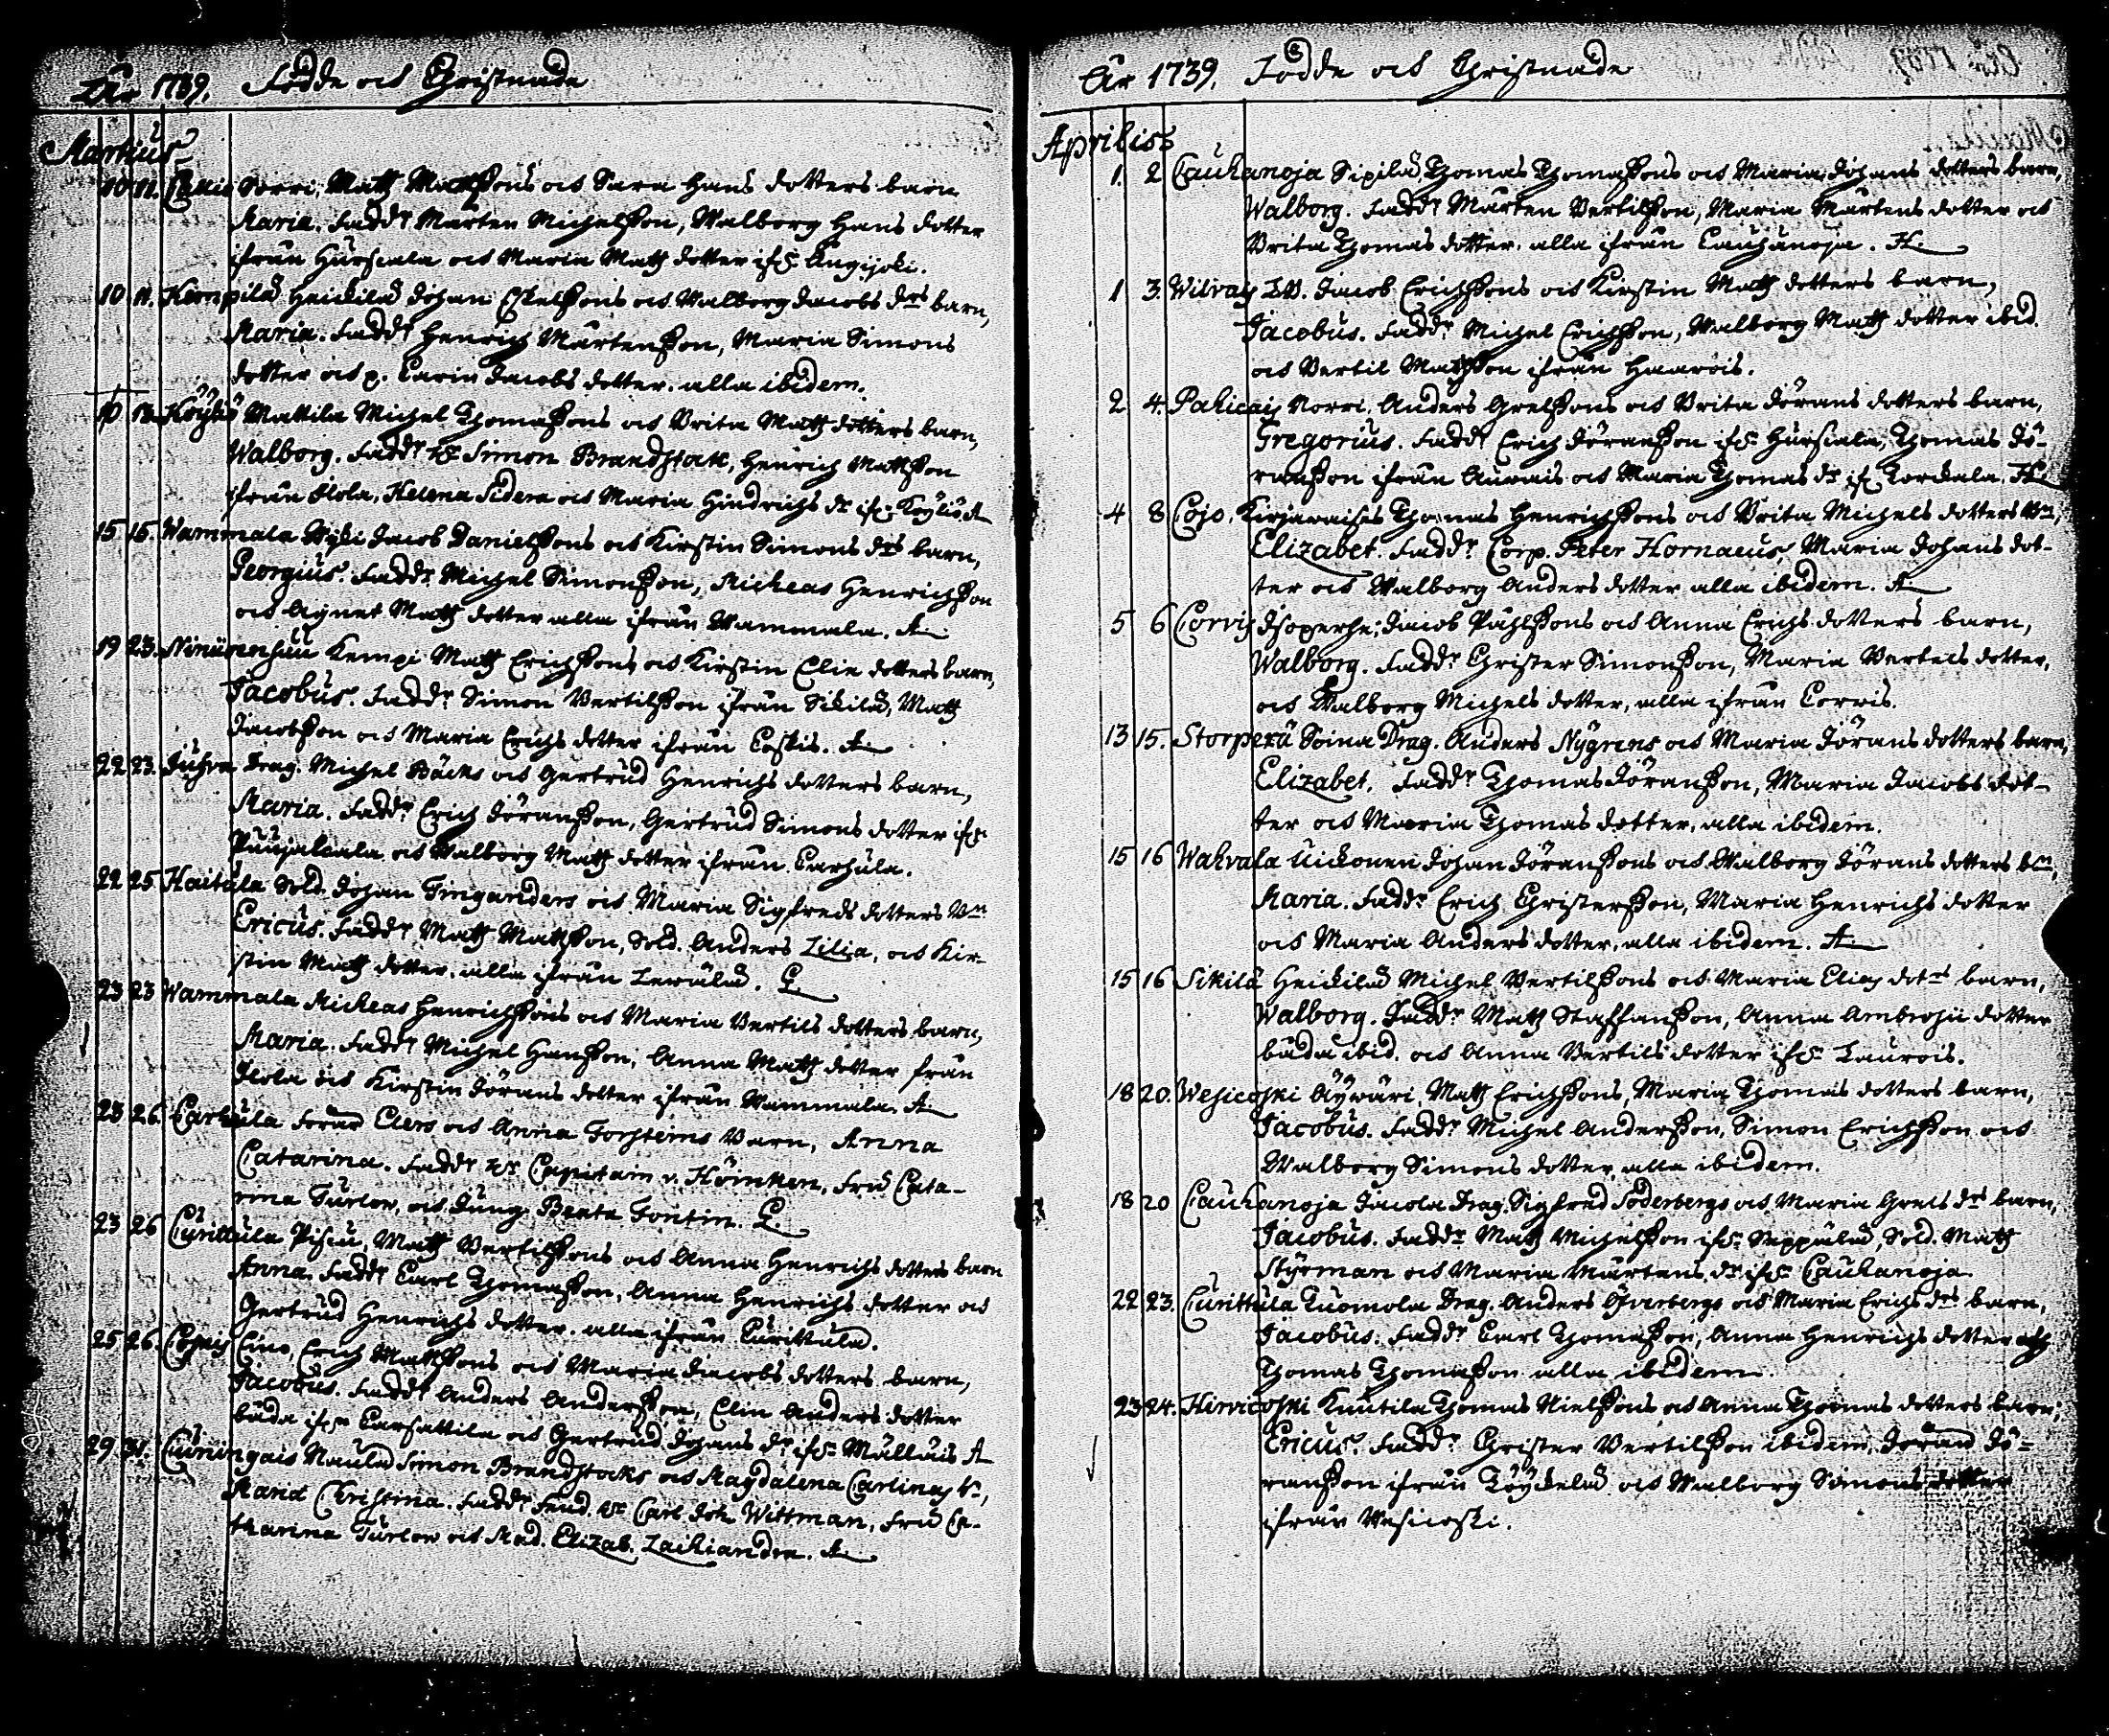 År 1739. Födde och Christnade
Martius
10 11. Sorri, Matz Matzsons och Sara Hans dotters barn
Maria. Fadd^r Mårten Michelsson, Walborg Hans dotter
ifrån Hursiala och Maria Matz dotter if^r Angijoki.
10 11. Kempilä Heickilä Johan Eskelssons och Walborg Jacobs d^rs barn,
Maria. Fadd^r Henrich Mårtensson, Maria Simons
dotter och p. Carin Jacobs dotter. alla ibidem.
10 Köyliö Mattila Michel Thomassons och Brita Matz dotters barn,
Walborg. Fadd^r Simon Brandstack, Henrich Mattsson
ifrån Ilola, Helena Sidera och Maria Hindrichs d^r if^r Köyliö. A
15 15. Wammala Jacob Danielssons och Kirstin Simons d^rs barn,
Georgius. Fadd^r Michel Simonsson, Micheas Henrichsson
och Agnet Matz dotter alla ifrån Wammala. A
19 23. Kempi Matz Erichssons och Kirstin Elin dotters barn,
Jacobus. Fadd^r Simon Bertilsson ifrån Sikilä, Matz
Jacobsson och Maria Erichs dotter ifrån Coskis. A
22 23. Juhva Drag. Michel Bäcks och Gertrud Henrichs dotters barn,
Maria. Fadd^r Erich Jöransson, Gertrud Simons dotter if^r
Puujalcala och Walborg Matz dotter ifrån Carhula.
22 25. Haitula Sold. Johan Tinganders och Maria Sigfreds dotters B^n
Ericus. Fadd^r Matz Mattsson, Sold. Anders Lilia, och Kir-
stin Matz dotter. alla ifrån Lewälä. G.
23 23 Wammala Micheas Henrichssons och Maria Bertils dotters barn,
Maria. Fadd^r Michel Hansson, Anna Matz dotter från
Ilola och Kirstin Jörans dotter ifrån Wammala. A
23 26. Carhula Jöran Elers och Anna Torsteins Barn, Anna
Catarina. Fadd^r H^r Capitain v. Hömken, Fru Cata-
rina Turlow, och Jung. Beata Fontin. G.
23 26 Curittula Pisiu, Matz Bertilssons och Anna Henrichs dotters barn
Anna. Fadd^r Carl Thomasson, Anna Henrichs dotter och
Gertrud Henrichs dotter. alla ifrån Curittula.
25 26. Eino, Erich Mattssons och Maria Jacobs dotters barn,
Jacobus. Fadd^r Anders Andersson, Elin Anders dotter
båda if^r Carsattila och Gertrud Johans d^r if^r Mullais A
29 31. Cuningais Naula Simon Brandstacks och Magdalena Carlinas b^n,
Maria Christina. Fadd^r H^r Carl Joh. Wittman, Fru Ca-
tharina Turlow och Mad. Elizab. Laihiandra. A
År 1739. Födde och Christnade
Aprilis
1. 2 Cauhanoja Sipilä, Thomas Thomassons och Maria Johans dotters barn,
Walborg. Fadd^r Mårten Bertilsson, Maria Mårtens dotter och
Brita Thomas dotter. alla ifrån Cauhanoja. H.
1 3. Jacob Erichssons och Kirstin Matz dotters barn,
Jacobus. Fadd^r Michel Erichsson, Walborg Matz dotter ibid.
och Bertil Matzsson ifrån Haarois.
2 4. Norri, Anders Grelssons och Brita Jörans dotters barn,
Gregorius. Fadd^r Erich Jöransson if^r Hursiala, Thomas Jö-
ransson ifrån Aurais och Maria Thomas d^r if^r Torckala. H.
4 8 Cojo, Kirjavaises Thomas Henrichssons och Brita Michels dotters B^n,
Elizabet. Fadd^r Corp. Peter Hornaeus, Maria Johans dot-
ter och Walborg Anders dotter alla ibidem. A
5 6 Corvis Isoperhe: Jacob Påhlssons och Anna Erichs dotters barn,
Walborg. Fadd^r Christer Simonsson, Maria Bertels dotter,
och Walborg Michels dotter, alla ifrån Corvis.
13 15. Storperä Soina Drag. Anders Nygrens och Maria Jörans dotters barn,
Elizabet. Fadd^r Thomas Jöransson, Maria Jacobs dot-
ter och Maria Thomas dotter, alla ibidem.
15 16 Wahvala Uickonen Johan Jöranssons och Walborg Jörans dotters b^n,
Maria. Fadd^r Erich Christersson, Maria Henrichs dotter
och Maria Anders dotter, alla ibidem. A
15 16 Sikilä Heickilä Michel Bertilssons och Maria Elias dot^rs barn,
Walborg. Fadd^r Matz Staffansson, Anna Ambrosii dotter
båda ibid. och Anna Bertils dotter if^r Laurois.
18 20. Wesicoski Äyväri, Matz Erichssons, Maria Thomas dotters barn,
Jacobus. Fadd^r Michel Andersson, Simon Erichsson och
Walborg Simons dotter alla ibidem.
18 20 Cauhanoja Jacola Drag. Sigfred Söderbergs och Maria Grels d^rs barn,
Jacobus. Fadd^r Matz Michelsson if^r Seppälä, Sold. Matz
Styrman och Maria Mårtens d^r if^r Cauhanoja.
22 23. Curittula Tuomola Drag. Anders Öfverbergs och Maria Erichs d^rs barn,
Jacobus. Fadd^r Carl Thomasson, Anna Henrichs dotter och
Thomas Thomasson alla ibidem.
23 24. Hirvicoski Knutila Thomas Nielssons och Anna Thomas dotters barn,
Ericus. Fadd^r Christer Bertilsson ibidem, Jöran Jö-
ransson ifrån Töyckelä och Walborg Simons dotter
ifrån Wesicoski.